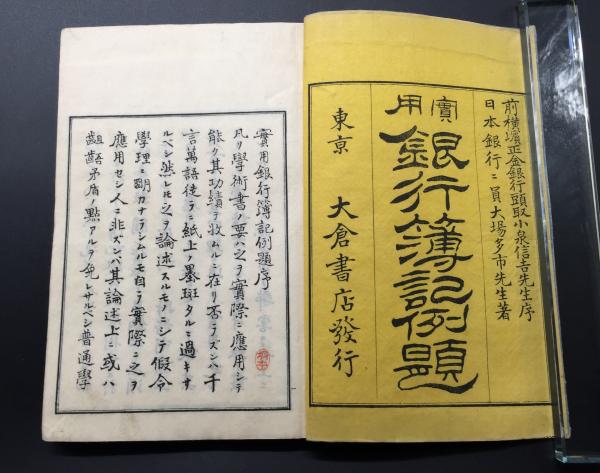 前橫濱正金銀行頭取小泉信吉先生序
日本銀行二員大場多市先生著
實用
銀行簿記例題
東京　大倉書店發行
實用銀行簿記例題序
凡ソ學術書ノ要ハ之ヲ實際ニ應用シテ
能ク其功績ヲ收ムルニ在リ否ラズンハ千
言萬語徒ラニ紙上ノ墨斑タルニ過キサ
ルベシ然レㇳモ之ヲ論述スルモノニシテ假令
學理ニ明カナラシムルモ自ラ實際ニ之ヲ
應用セシ人ニ非ズンバ其論述上ニ或ハ
齟齬矛盾ノ點アルヲ免レサルベシ普通學